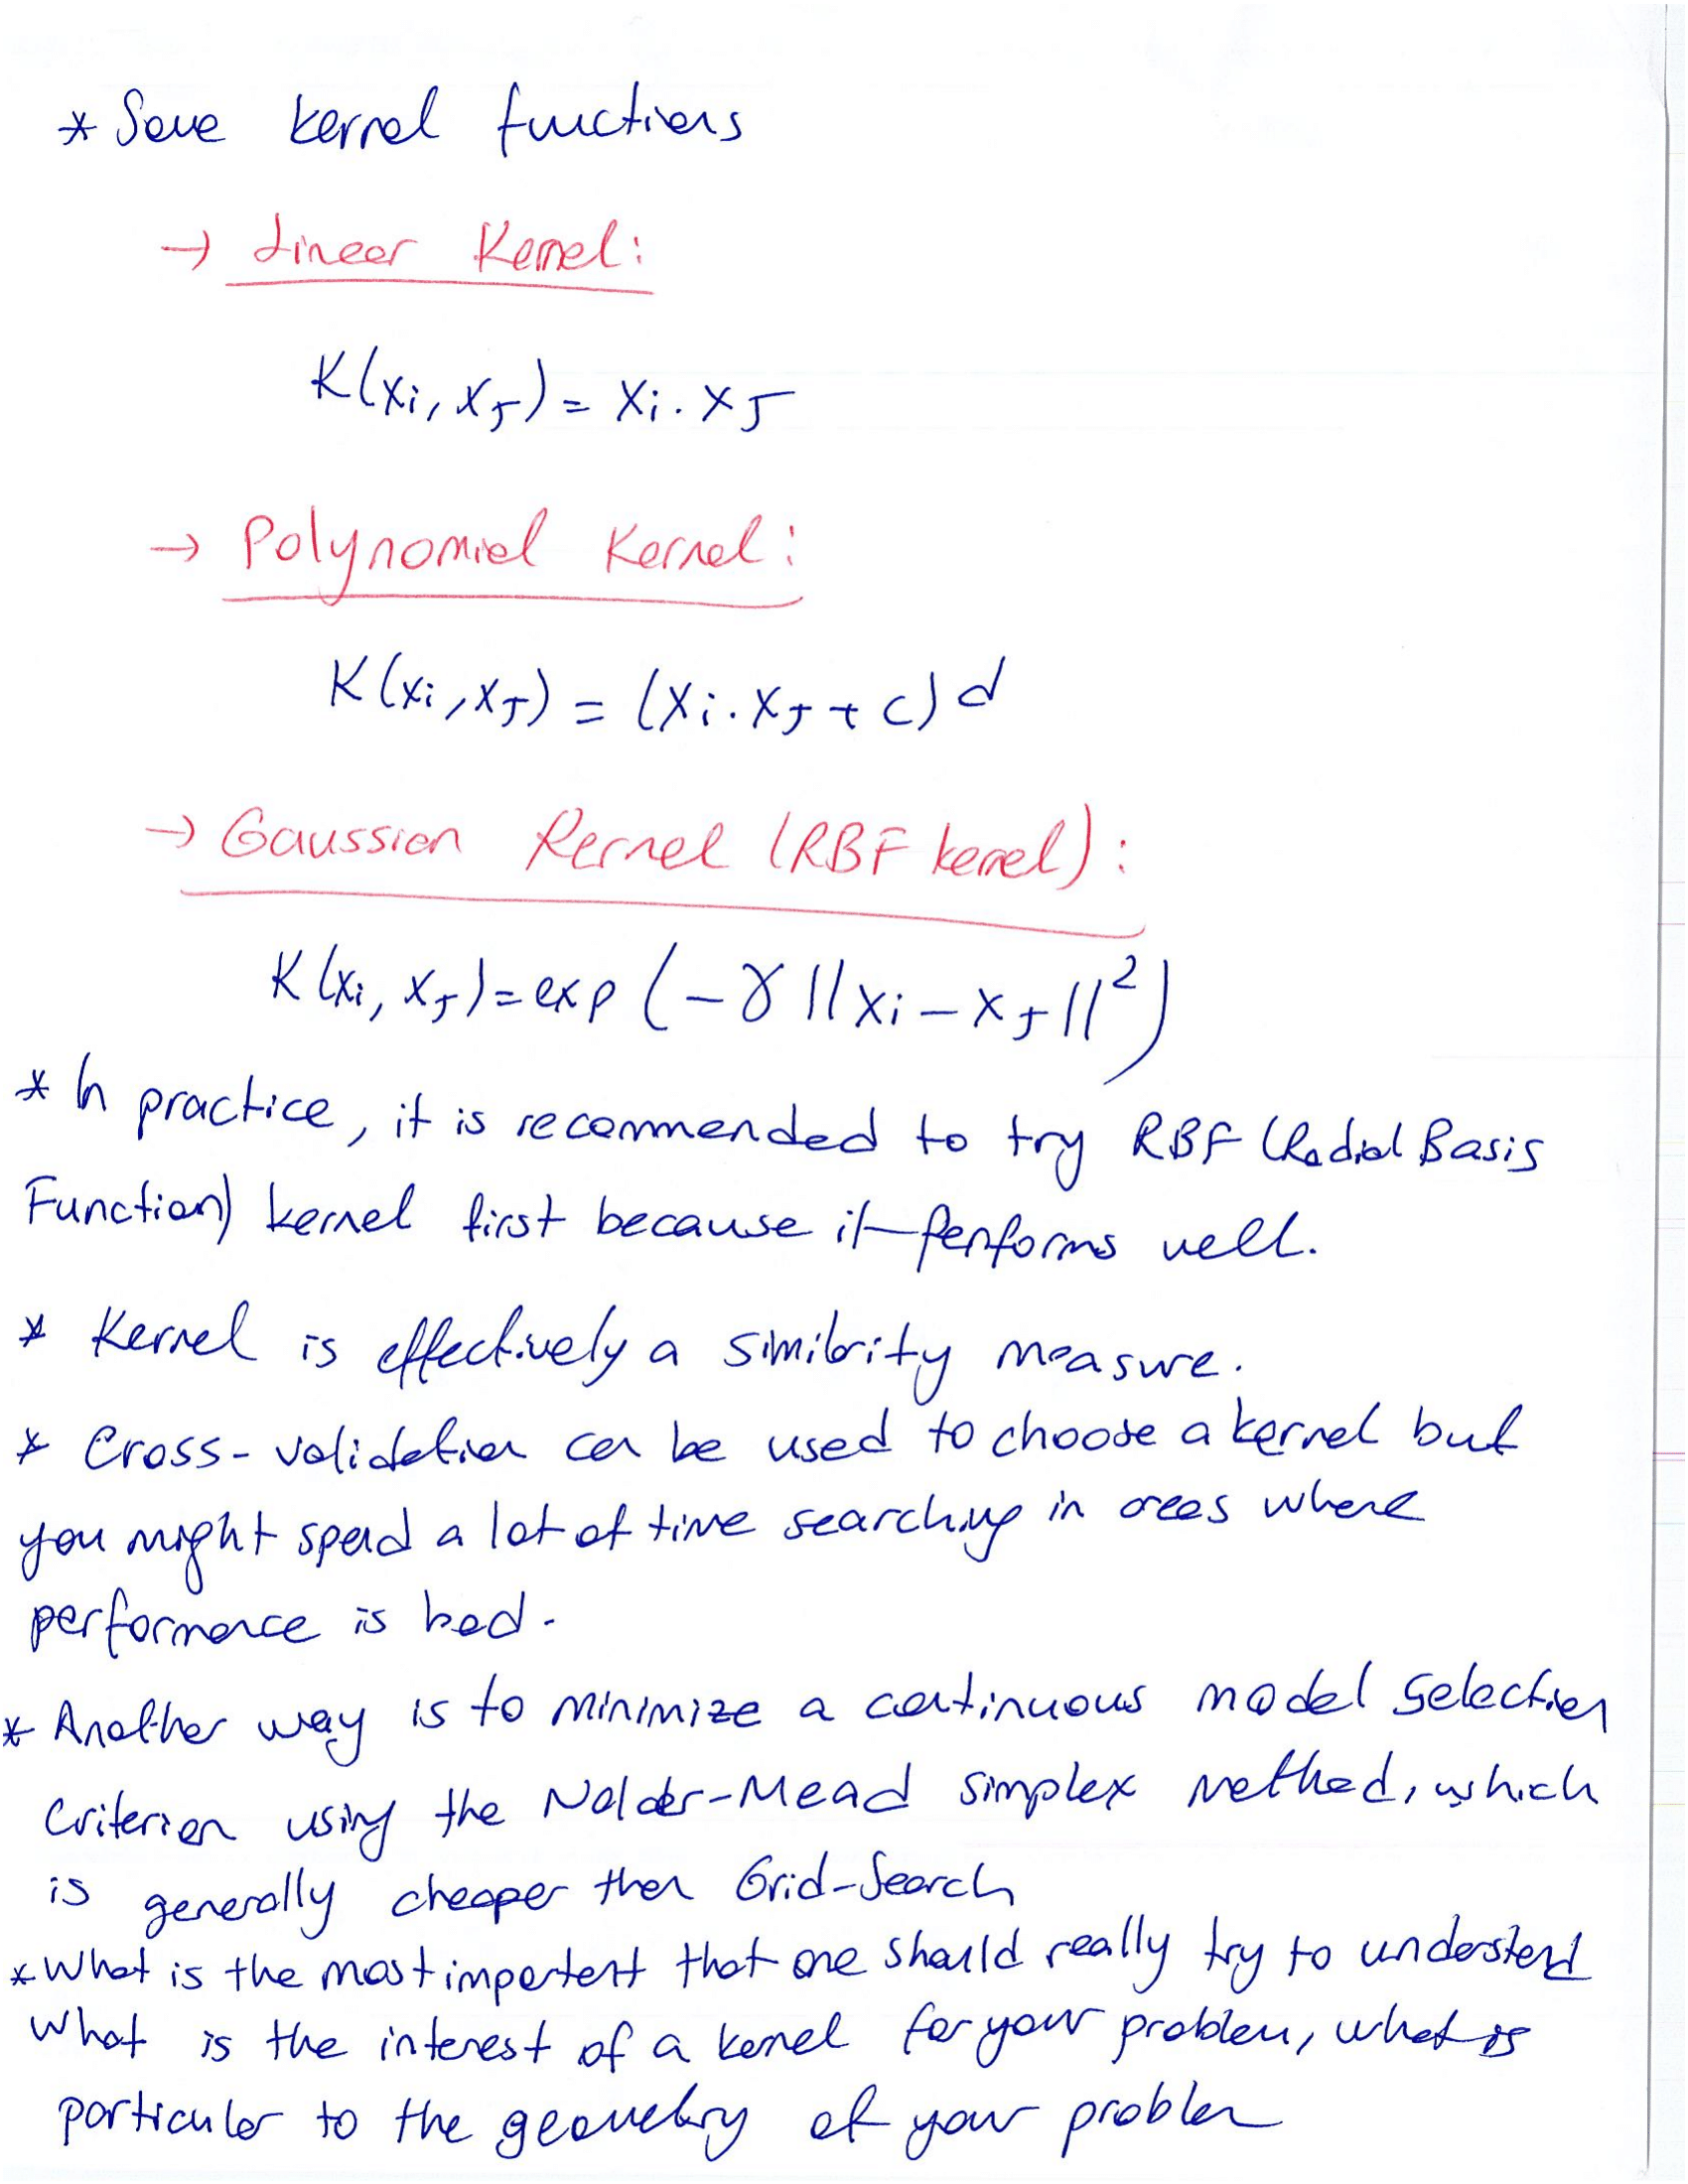 * Some kernel functions
→ Linear Kernel:
K(xi, xJ) = xi . xJ
→ Polynomial Kernel:
K(xi, xJ) = (xi . xJ + c) d
→ Gaussian Kernel (RBF kernel):
K(xi, xJ) = exp (-γ ||xi - xJ||²)
* In practice, it is recommended to try RBF (Radial Basis
Function) kernel first because it performs well.
* Kernel is effectively a similarity measure.
* Cross-validation can be used to choose a kernel but
you might spend a lot of time searching in areas where
performance is bad.
* Another way is to minimize a continuous model selection
criterion using the Nelder-Mead simplex method, which
is generally cheaper then Grid-Search
* What is the most important that one should really try to understand
what is the interest of a kernel for your problem, what is
particular to the geometry of your problem